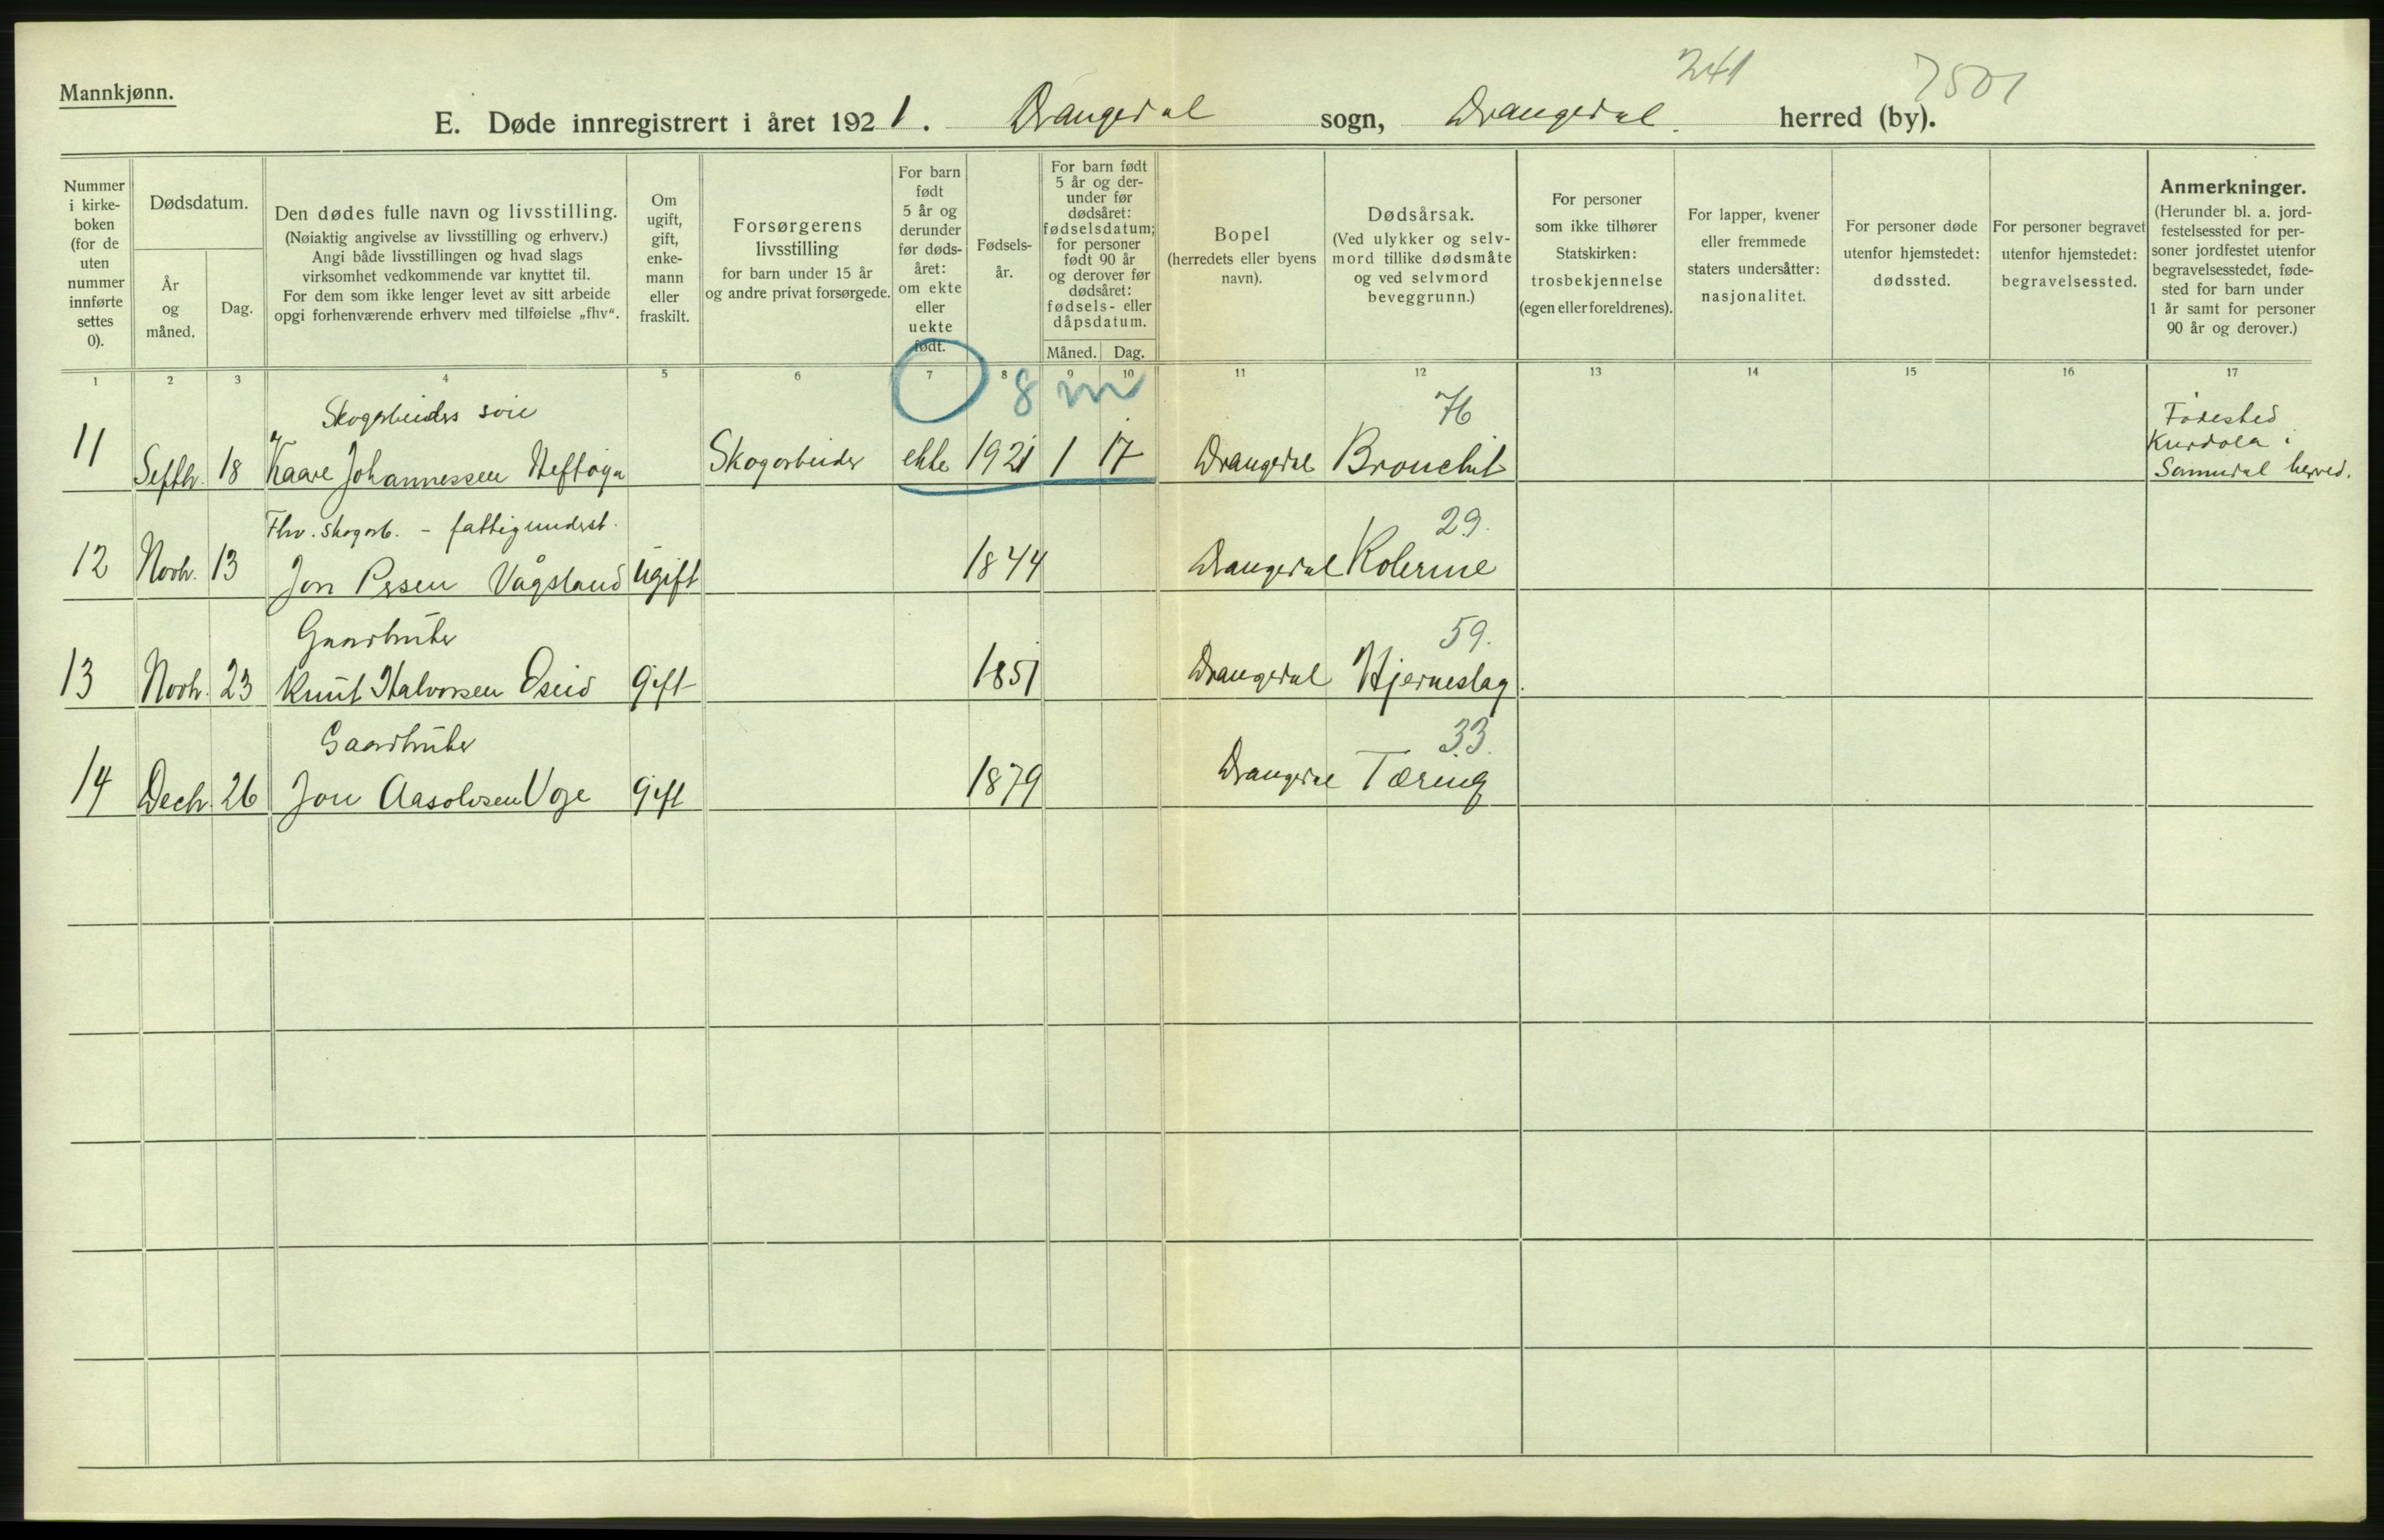 241 7501
Mannkjønn.
E. Døde innregistrert i året 1921. Drangedal sogn, Drangedal. herred (by).
Nummer
i kirke-
boken
(for de
uten
nummer
innførte
settes
0).
Dødsdatum.
År
og
måned.
Dag.
Den dødes fulle navn og livsstilling.
(Nøiaktig angivelse av livsstilling og erhverv.)
Angi både livsstillingen og hvad slags
virksomhet vedkommende var knyttet til.
For dem som ikke lenger levet av sitt arbeide
opgi forhenværende erhverv med tilføielse „fhv“.
Om
ugift,
gift,
enke-
mann
eller
fraskilt.
Forsørgerens
livsstilling
for barn under 15 år
og andre privat forsørgede.
For barn
født
5 år og
derunder
før døds-
året:
om ekte
eller
uekte
født.
Fødsels-
år.
For barn født
5 år og der-
under før
dødsåret:
fødselsdatum;
for personer
født 90 år
og derover før
dødsåret:
fødsels- eller
dåpsdatum.
Måned. Dag.
Bopel
(herredets eller byens
navn).
Dødsårsak.
(Ved ulykker og selv-
mord tillike dødsmåte
og ved selvmord
beveggrunn.)
For personer
som ikke tilhører
Statskirken:
trosbekjennelse
(egen eller foreldrenes).
For lapper, kvener
eller fremmede
staters undersåtter:
nasjonalitet.
For personer døde
utenfor hjemstedet:
dødssted.
For personer begravet
utenfor hjemstedet:
begravelsessted.
Anmerkninger.
(Herunder bl. a. jord-
festelsessted for per-
soner jordfestet utenfor
begravelsesstedet, føde-
sted for barn under
1 år samt for personer
90 år og derover.)
1 2 3 4 5 6 7 8 9 10 11 12 13 14 15 16 17
8 m
Skogarbeiders søn 76 Fødested
11 Septbr. 18 Kaare Johannessen Skogarbeider ekte 1921 1 17 Drangedal Bronchit i
herred.
Fhv. skogarb. – fattigunderst. 29.
12 Novbr. 13 Jon Persen Vågsland Ugift 1844 Drangedal
Gaardbruker 59.
13 Novbr. 23 Knut Halvorsen Oseid Gift 1851 Drangedal Hjerneslag.
Gaardbruker 33.
14 Decbr. 26 Jon Aasolvsen Voje Gift 1879 Drangedal Tæring